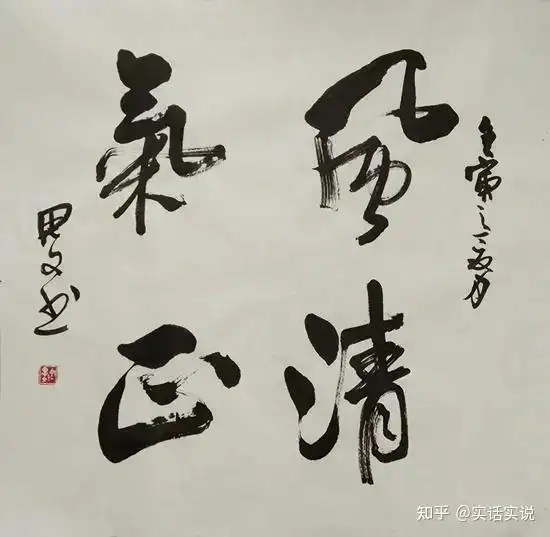 壬寅之夏月
風清
氣正
文书
知乎 @实话实说